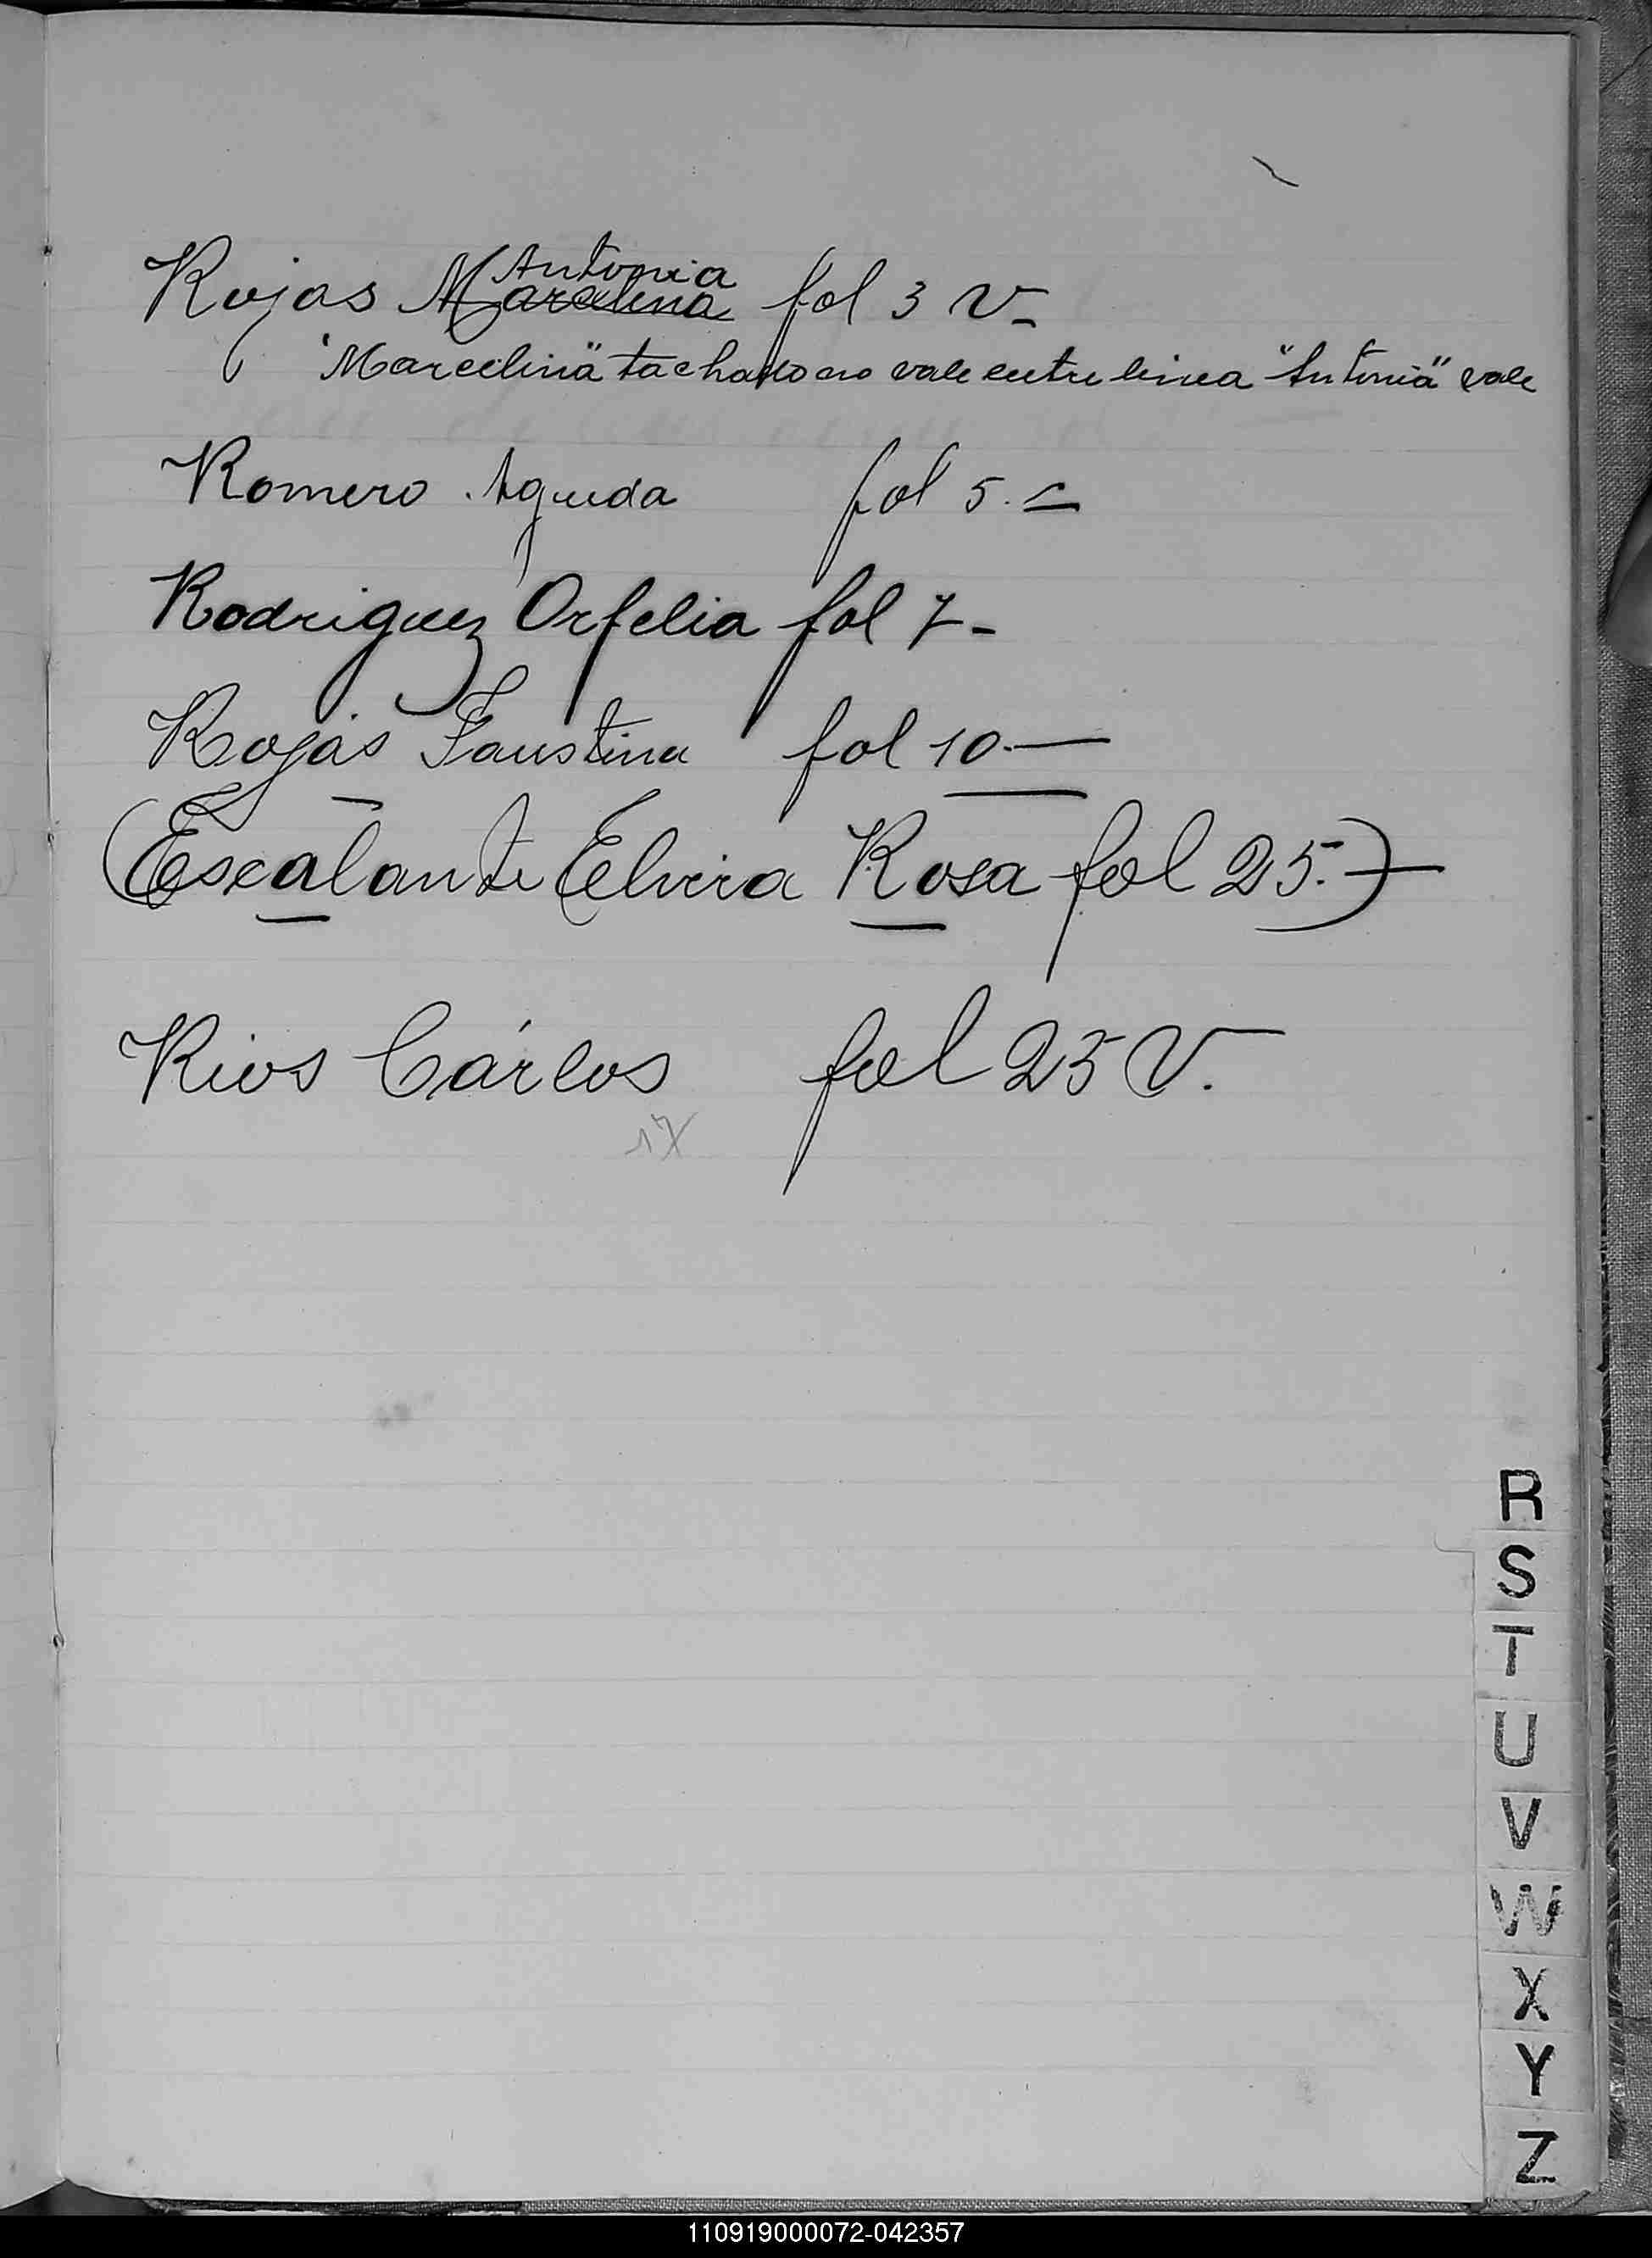 Rojas Marcelina Antonia fol 3 V-
"Marcelina" tachado no vale entre linea "Antonia" vale
Romero Agueda fol 5.-
Rodriguez Orfelia fol 7-
Rojas Faustina fol 10.-
(Escalante Elvira Rosa fol 25.-)
Rios Cárlos fol 25 V.
17
R
S
T
U
V
W
X
Y
Z
110919000072-042357